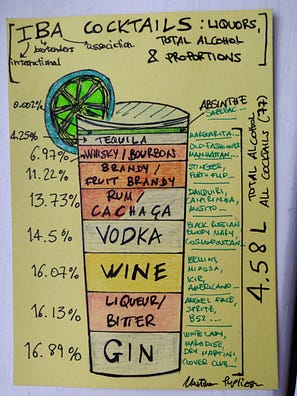 [IBA COCKTAILS: LIQUORS,
bartenders association TOTAL ALCOHOL
international & PROPORTIONS]
0.002% ABSINTHE
SAZERAC...
4.25% TEQUILA MARGARITA...
6.97% WHISKY/BOURBON OLD FASHIONED
MANHATTAN...
11.22% BRANDY/
FRUIT BRANDY STINGER,
PORTO FLIP...
13.73% RUM/
CACHAÇA DAIQUIRI,
CAIPIRINHA,
MOJITO...
14.5% VODKA BLACK RUSSIAN
BLOODY MARY,
COSMOPOLITAN...
16.07% WINE BELLINI,
MIMOSA,
KIR,
AMERICANO...
16.13% LIQUEUR/
BITTER ANGEL FACE,
SPRITZ,
B52...
16.89% GIN WHITE LADY,
PARADISE,
DRY MARTINI
CLOVER CLUB...
4.58 L TOTAL ALCOHOL
ALL COCKTAILS (77)